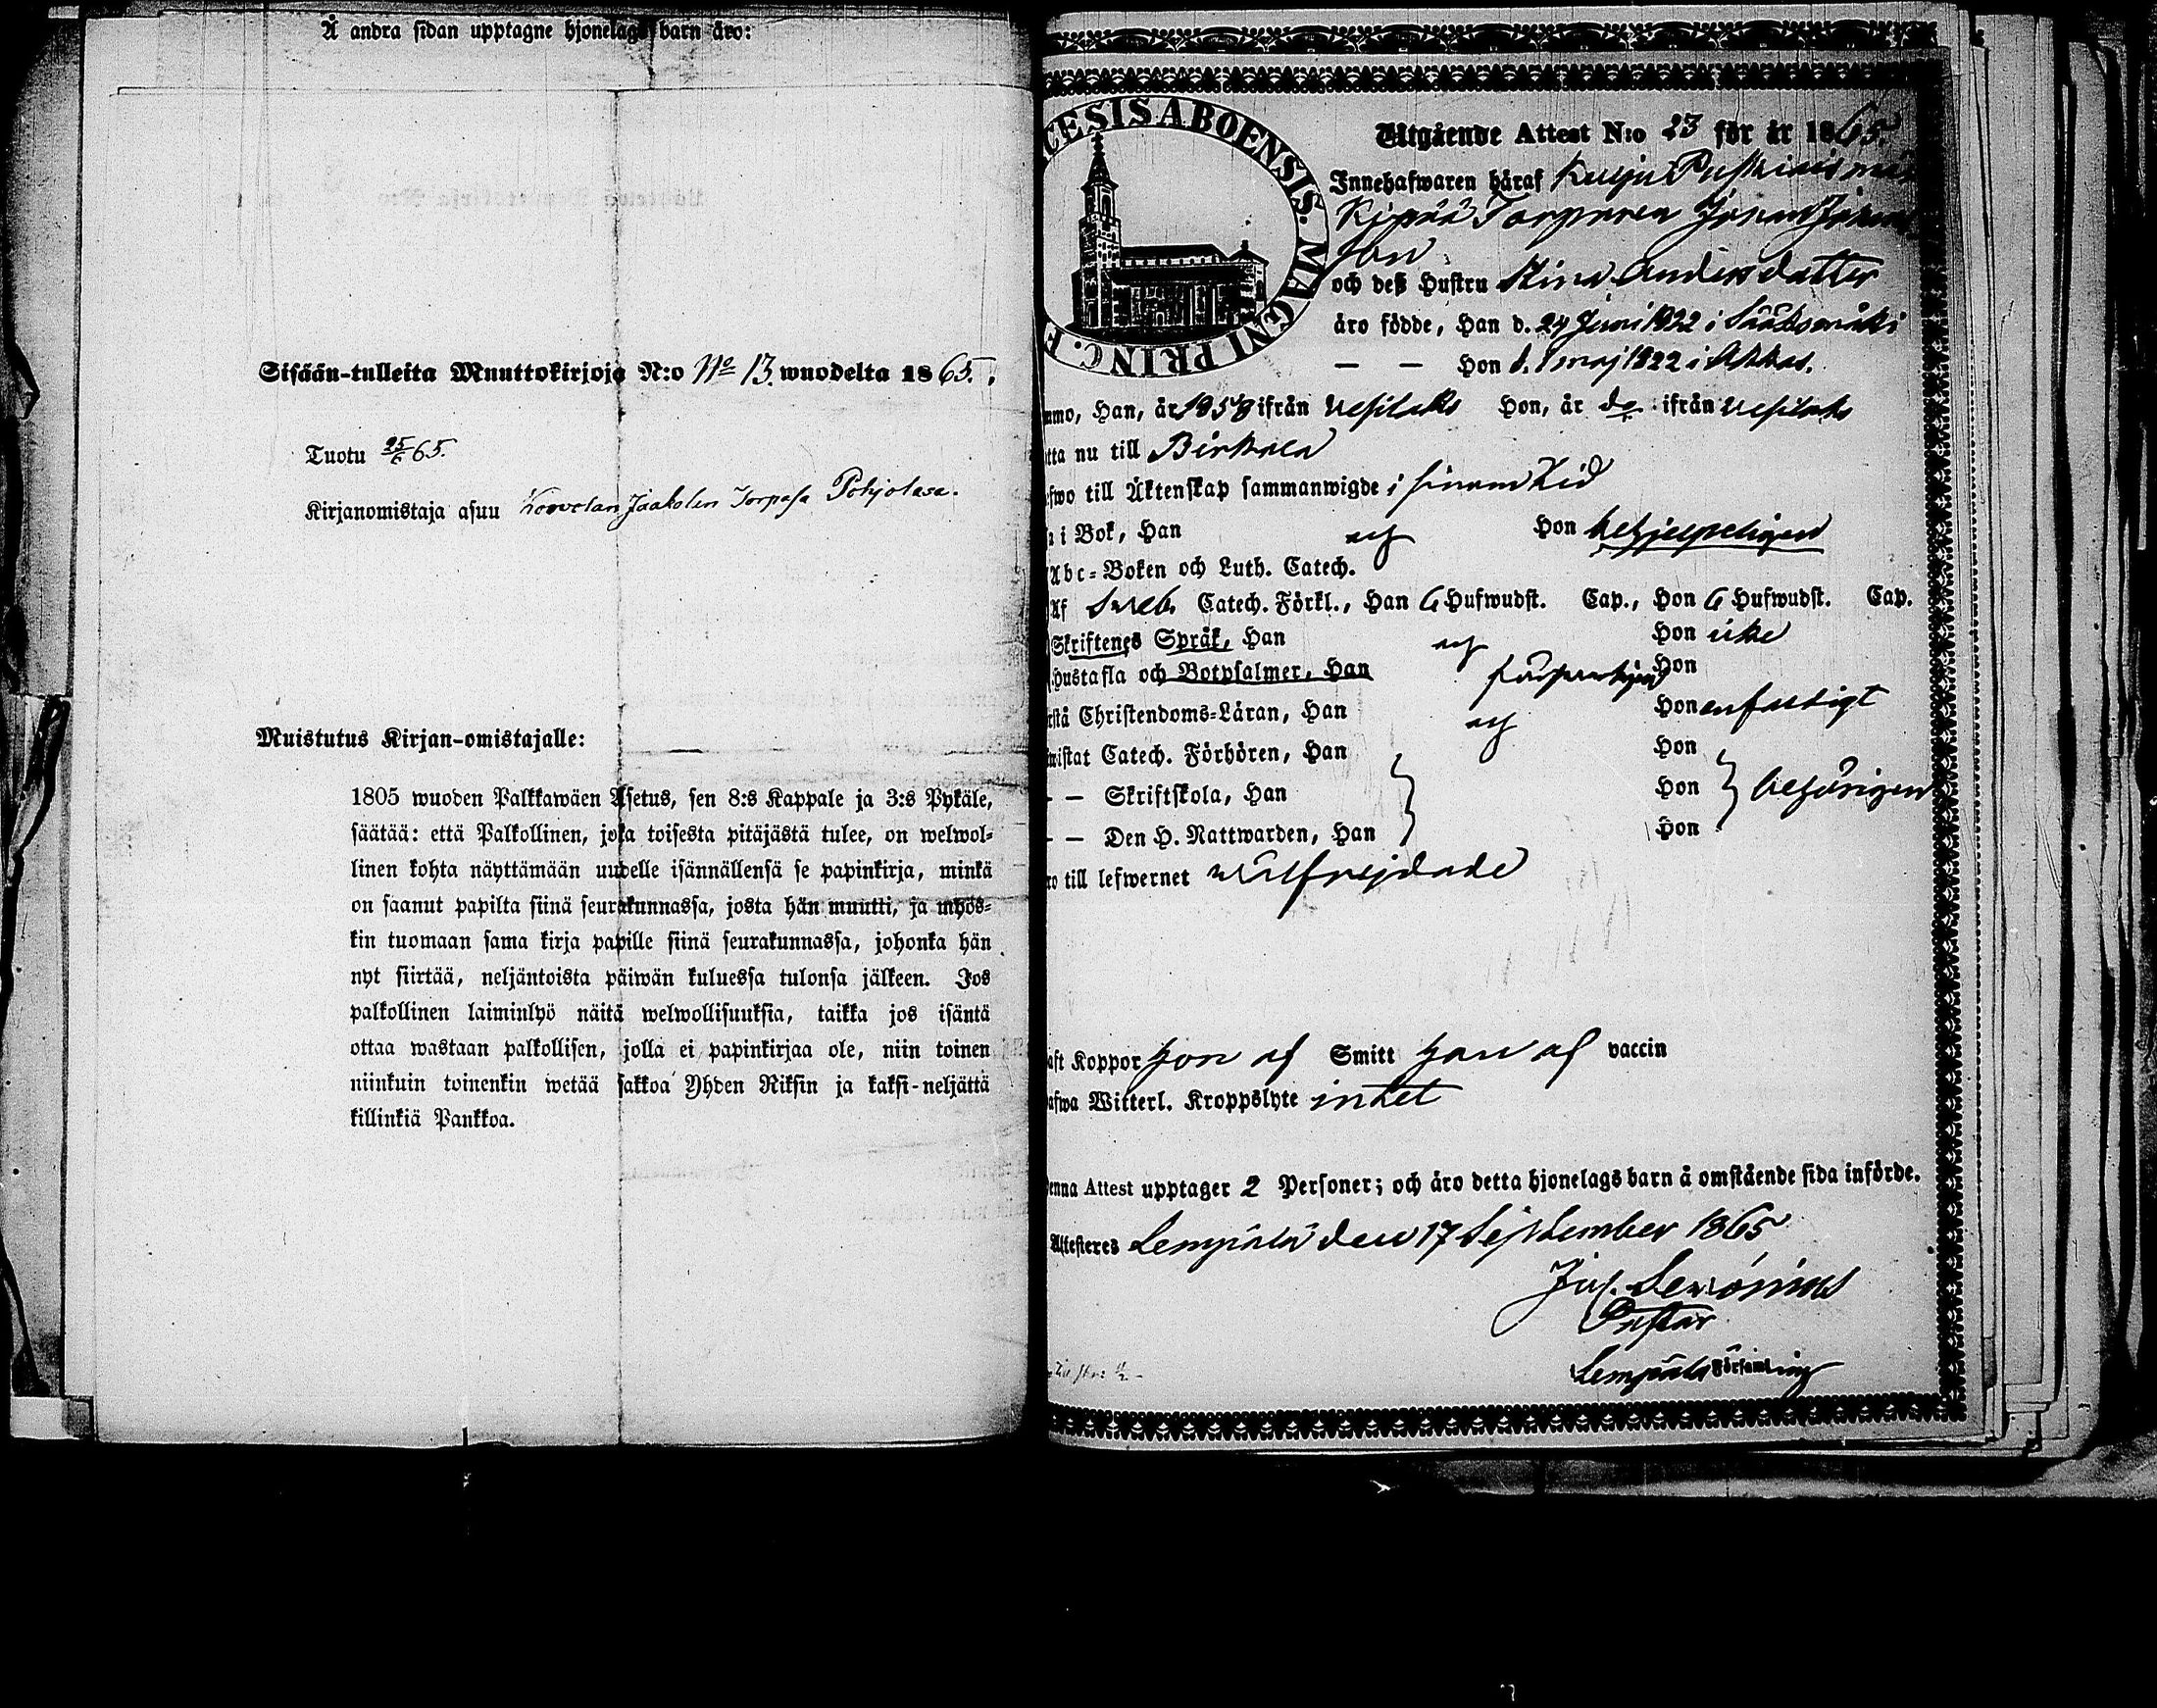 Å andra sidan upptagne hjonelags barn äro:
Sisään-tulleita Muuttokirjoja N:o No 13. wuodelta 1865.
Tuotu 25/6 65.
Kirjanomistaja asuu Jaakolen Torpasa Pohjolasa.
Muistutus Kirjan-omistajalle:
1805 wuoden Palkkawäen Asetus, sen 8:s Kappale ja 3:s Pykäle,
säätää: että Palkollinen, joka toisesta pitäjästä tulee, on welwol-
linen kohta näyttämään uudelle isännällensä se papinkirja, minkä
on saanut papilta siinä seurakunnassa, josta hän muutti, ja myös-
kin tuomaan sama kirja papille siinä seurakunnassa, johonka hän
nyt siirtää, neljäntoista päiwän kuluessa tulonsa jälkeen. Jos
palkollinen laiminlyö näitä welwollisuuksia, taikka jos isäntä
ottaa wastaan palkollisen, jolla ei papinkirjaa ole, niin toinen
niinkuin toinenkin wetää sakkoa Yhden Riksin ja kaksi-neljättä
killinkiä Pankkoa.
CESIS ABOENSIS. MAGNI PRINC. F
Utgående Attest N:o 23 för år 1865.
Innehafwaren häraf Kulju
Torparen Johan
son
och deß Hustru Stina Andersdatter
äro födde, Han d. 24 Juni 1822 i Sääksmäki
— — Hon d. 1 maj 1822 i Akkas.
mmo, Han, år 1858 ifrån Vesilaks Hon, år do ifrån Vesilaks
tta nu till Birkala
efwo till Äktenskap sammanwigde i sinom tid
i Bok, Han och Hon behjelpeligen
Abc-Boken och Luth. Catech.
Af Sweb. Catech. Förkl., Han 6 Hufwudst. Cap., Hon 6 Hufwudst. Cap.
Skriftenes Språk, Han och Hon icke
Hustafla och Botpsalmer, Han Hon
stå Christendoms-Läran, Han och Hon enfaldigt
wistat Catech. Förhören, Han Hon
— — Skriftskola, Han Hon behörigen
— — Den H. Nattwarden, Han Hon
ro till lefwernet wälfrejdade
aft Koppor hon af Smitt han af vaccin
afwa Witterl. Kroppslyte intet
enna Attest upptager 2 Personer; och äro detta hjonelags barn å omstående sida införde.
Attesteres Lempälä den 17 September 1865
Pastor
Lempälä Församling